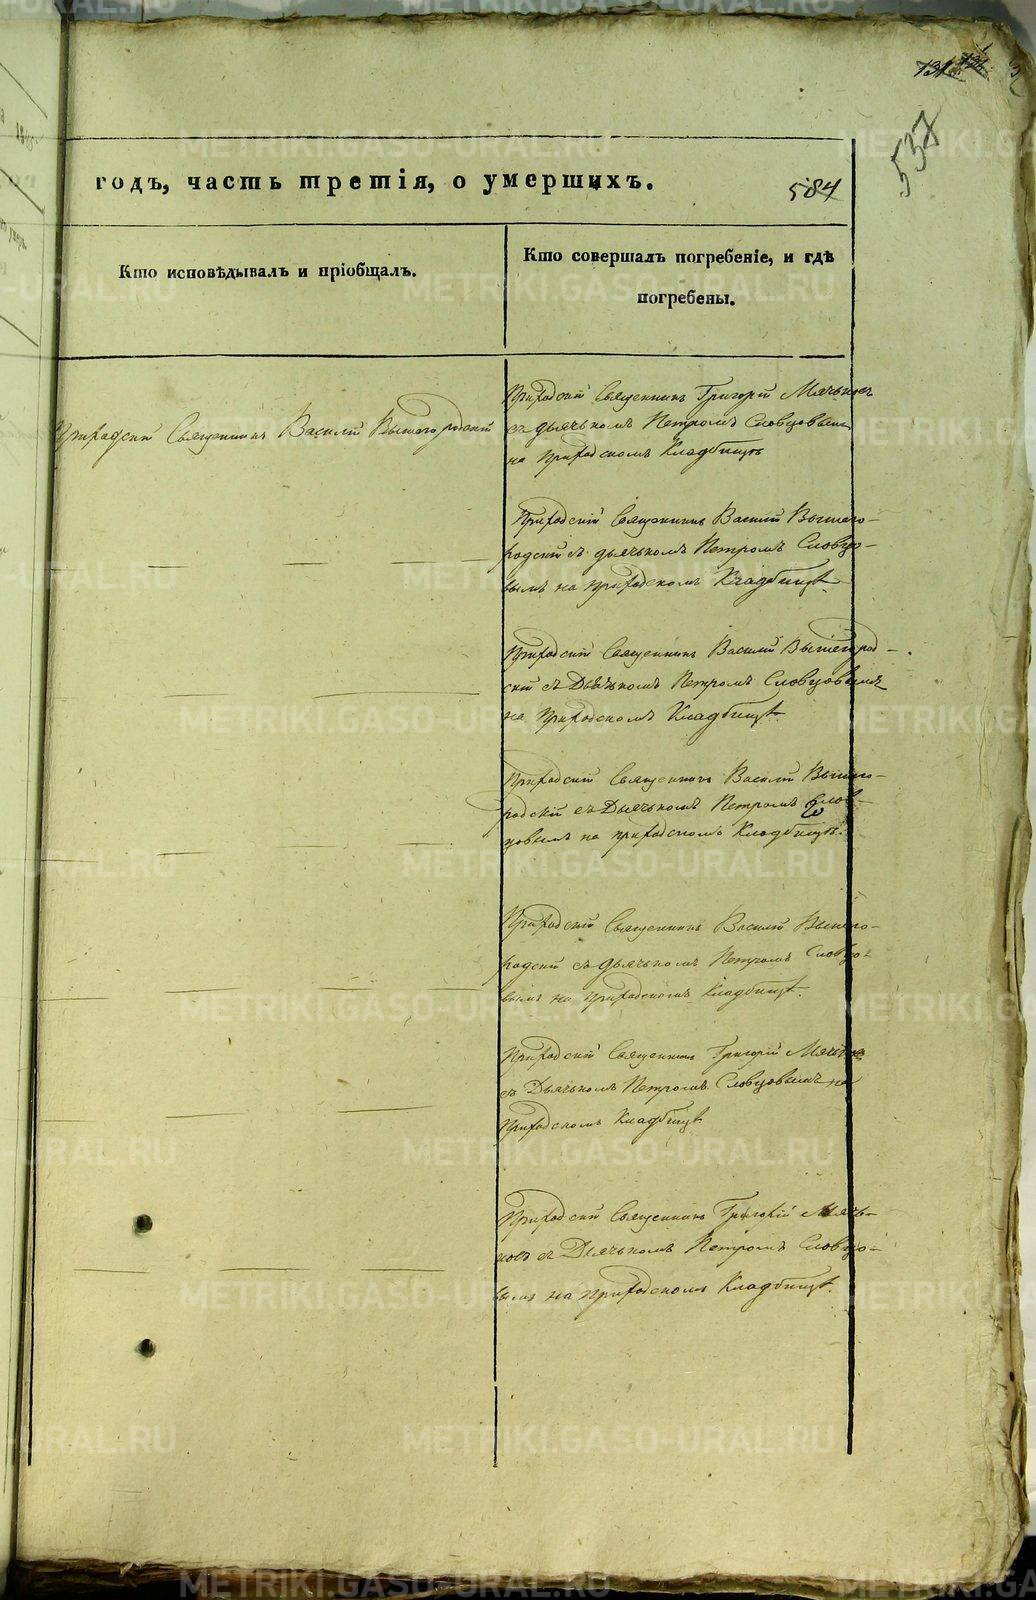 537
годъ, часть третія, о умершихъ.
584
Кто исповѣдывалъ и пріобщалъ.
Кто совершалъ погребеніе, и гдѣ
погребены.
Приходскій Священникъ Василій Вышегородскій
Приходскій Священникъ Григорій
съ дьячькомъ Петромъ Словцовымъ
на Приходскомъ Кладбищѣ
Приходскій Священникъ Василій Вышего-
родскій съ дьячькомъ Петромъ Словцо-
вымъ на приходскомъ Кладбищѣ
Приходскій Священникъ Василій Вышегород-
скій съ Дьячькомъ Петромъ Словцовымъ
на Приходскомъ Кладбищѣ
Приходскій Священникъ Василій Вышего-
родскій съ Дьячькомъ Петромъ Слов-
цовымъ на приходскомъ Кладбищѣ.
Приходскій Священникъ Василій Вышего-
родскій съ дьячькомъ Петромъ Словцо-
вымъ на Приходскомъ Кладбищѣ.
Приходскій Священникъ Григорій
съ Дьячькомъ Петромъ Словцовымъ на
Приходскомъ Кладбищѣ
Приходскій Священникъ Григорій
съ Дьячькомъ Петромъ Словцо-
вымъ на Приходскомъ Кладбищѣ.
METRIKI.GASO-URAL.RU